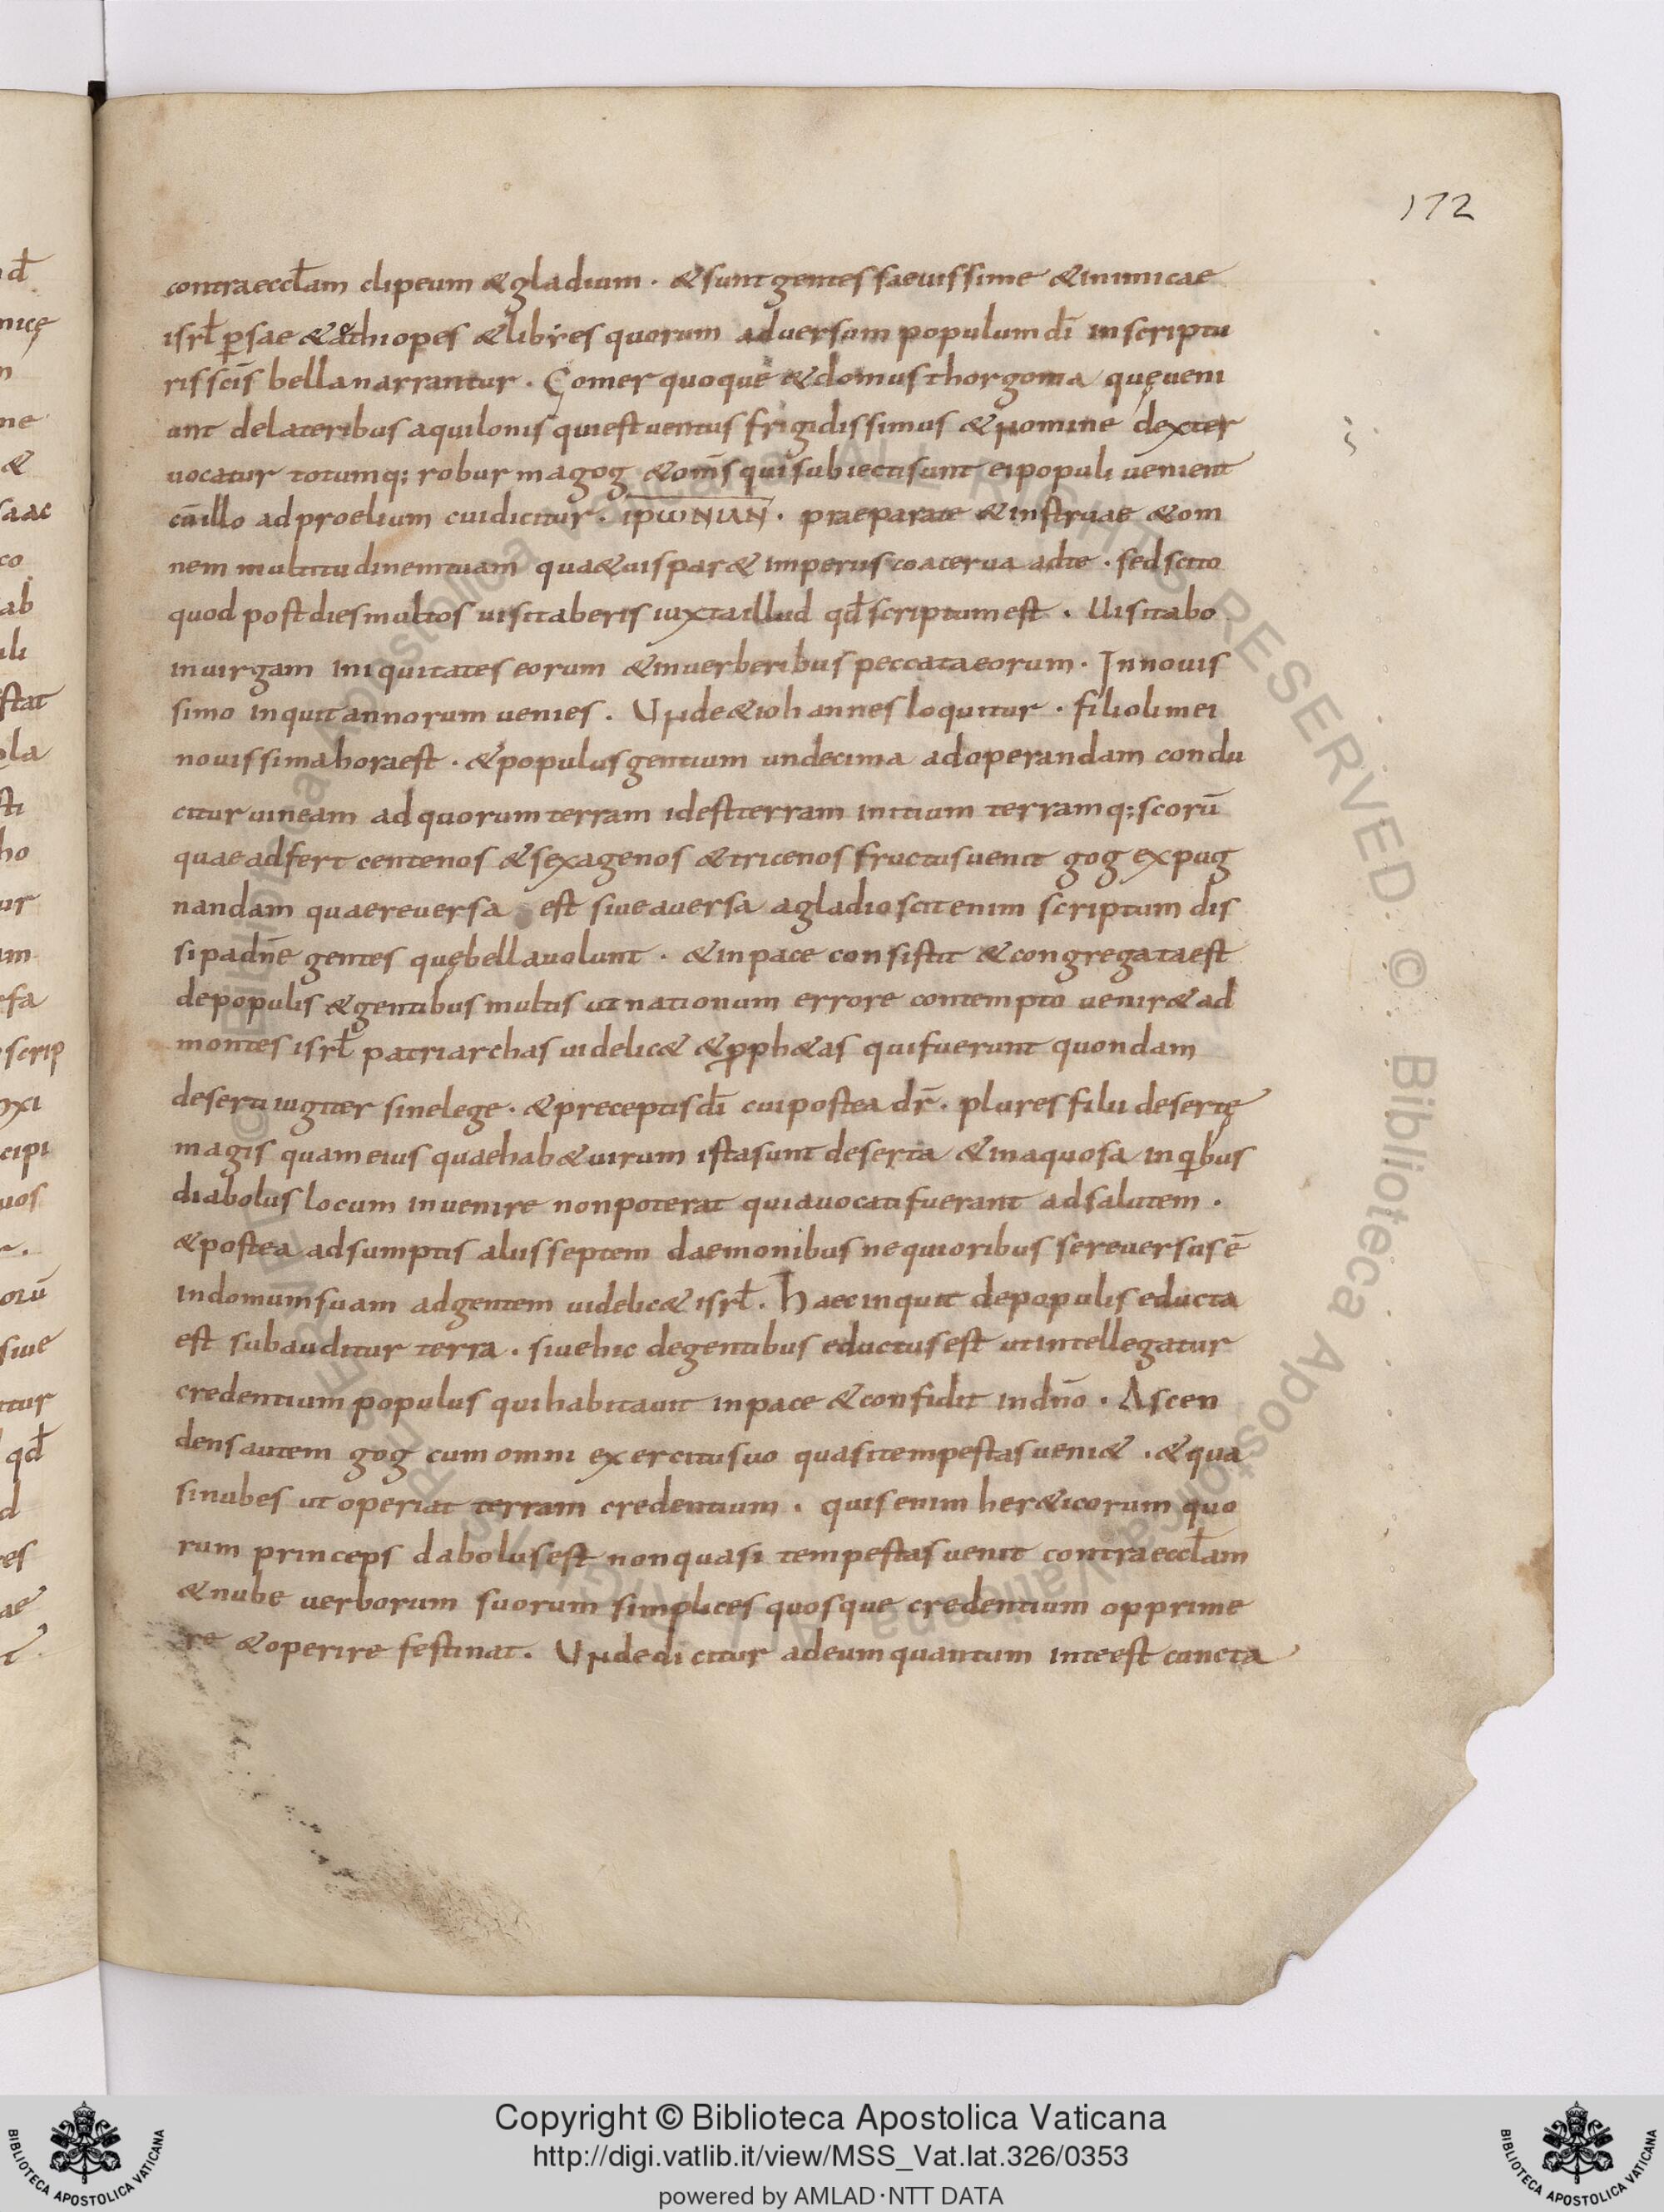 172
contraeccl̅am clipeum & gladium · & sunt gentes saeuissime & inimicae
isrl̅ p̲sae & æthiopes & libẏes quorum aduersom populum di̅ inscriptu
ris sc̅is bella narrantur · Gomer quoque & domus thorgoma quę ueni
unt delateribus aquilonis qui est uentus frigidissimus & nomine dexter
uocatur totumq; robur magog & om̅s qui subiecti sunt ei populi uenient
cu̅ illo ad proelium cui dicitur · ιρωΝΙΑΝ · praeparare & instruae & om
nem multitudinem tuam quae & uis par & imperiis coacerua ad te · sed scito
quod post dies multos uisitaberis iuxta illud qd̅ scriptum est · Uisitabo
inuirgam iniquitates eorum & inuerberibus peccata eorum · Innouis
simo inquit annorum uenies . Unde & iohannes loquitur · filioli mei
nouissima hora est · & populus gentium undecima ad operandam condu
citur uineam ad quorum terram id est terram initium terramq; scoru̅
quae adfert centenos & sexagenos & tricenos fructus uenit gog expug
nandam quae reuersa est siue auersa agladio scit enim scriptum dis
sipa dn̅e gentes quę bella uolunt · & inpace consistit & congregata est
depopulis & gentibus multis ut nationum errore contempto uenir& ad
montes isrl̅ patriarchas uidelic& & p̲ph&as qui fuerunt quondam
deserti iugiter sine lege · & preceptis di̅ cui postea dr̅ · plures filii desertę
magis quam eius quae hab& uirum ista sunt deserta & inaquosa in qibus
diabolus locum inuenire non poterat quia uocati fuerant ad salutem .
& postea adsumptis aliis septem daemonibus nequioribus se reuersus e̅
indomum suam adgentem uidelic& isrl̅ . Haec inquit depopulis educta
est subauditur terra . siue hic degentibus eductus est ut intellegatur
credentium populus qui habitauit inpace & confidit indn̅o · Ascen
dens autem gog cum omni exercitu suo quasi tempestas ueni& . & qua
si nubes ut operiat terram credentium . quis enim her&icorum quo
rum princeps dabolus est non quasi tempestas uenit contra eccl̅am
& nube uerborum suorum simplices quosque credentium opprime
re & operire festinat . Unde dicitur adeum quantum inte est cuncta
Copyright © Biblioteca Apostolica Vaticana
http://digi.vatlib.it/view/MSS_Vat.lat.326/0353
powered by AMLAD·NTT DATA